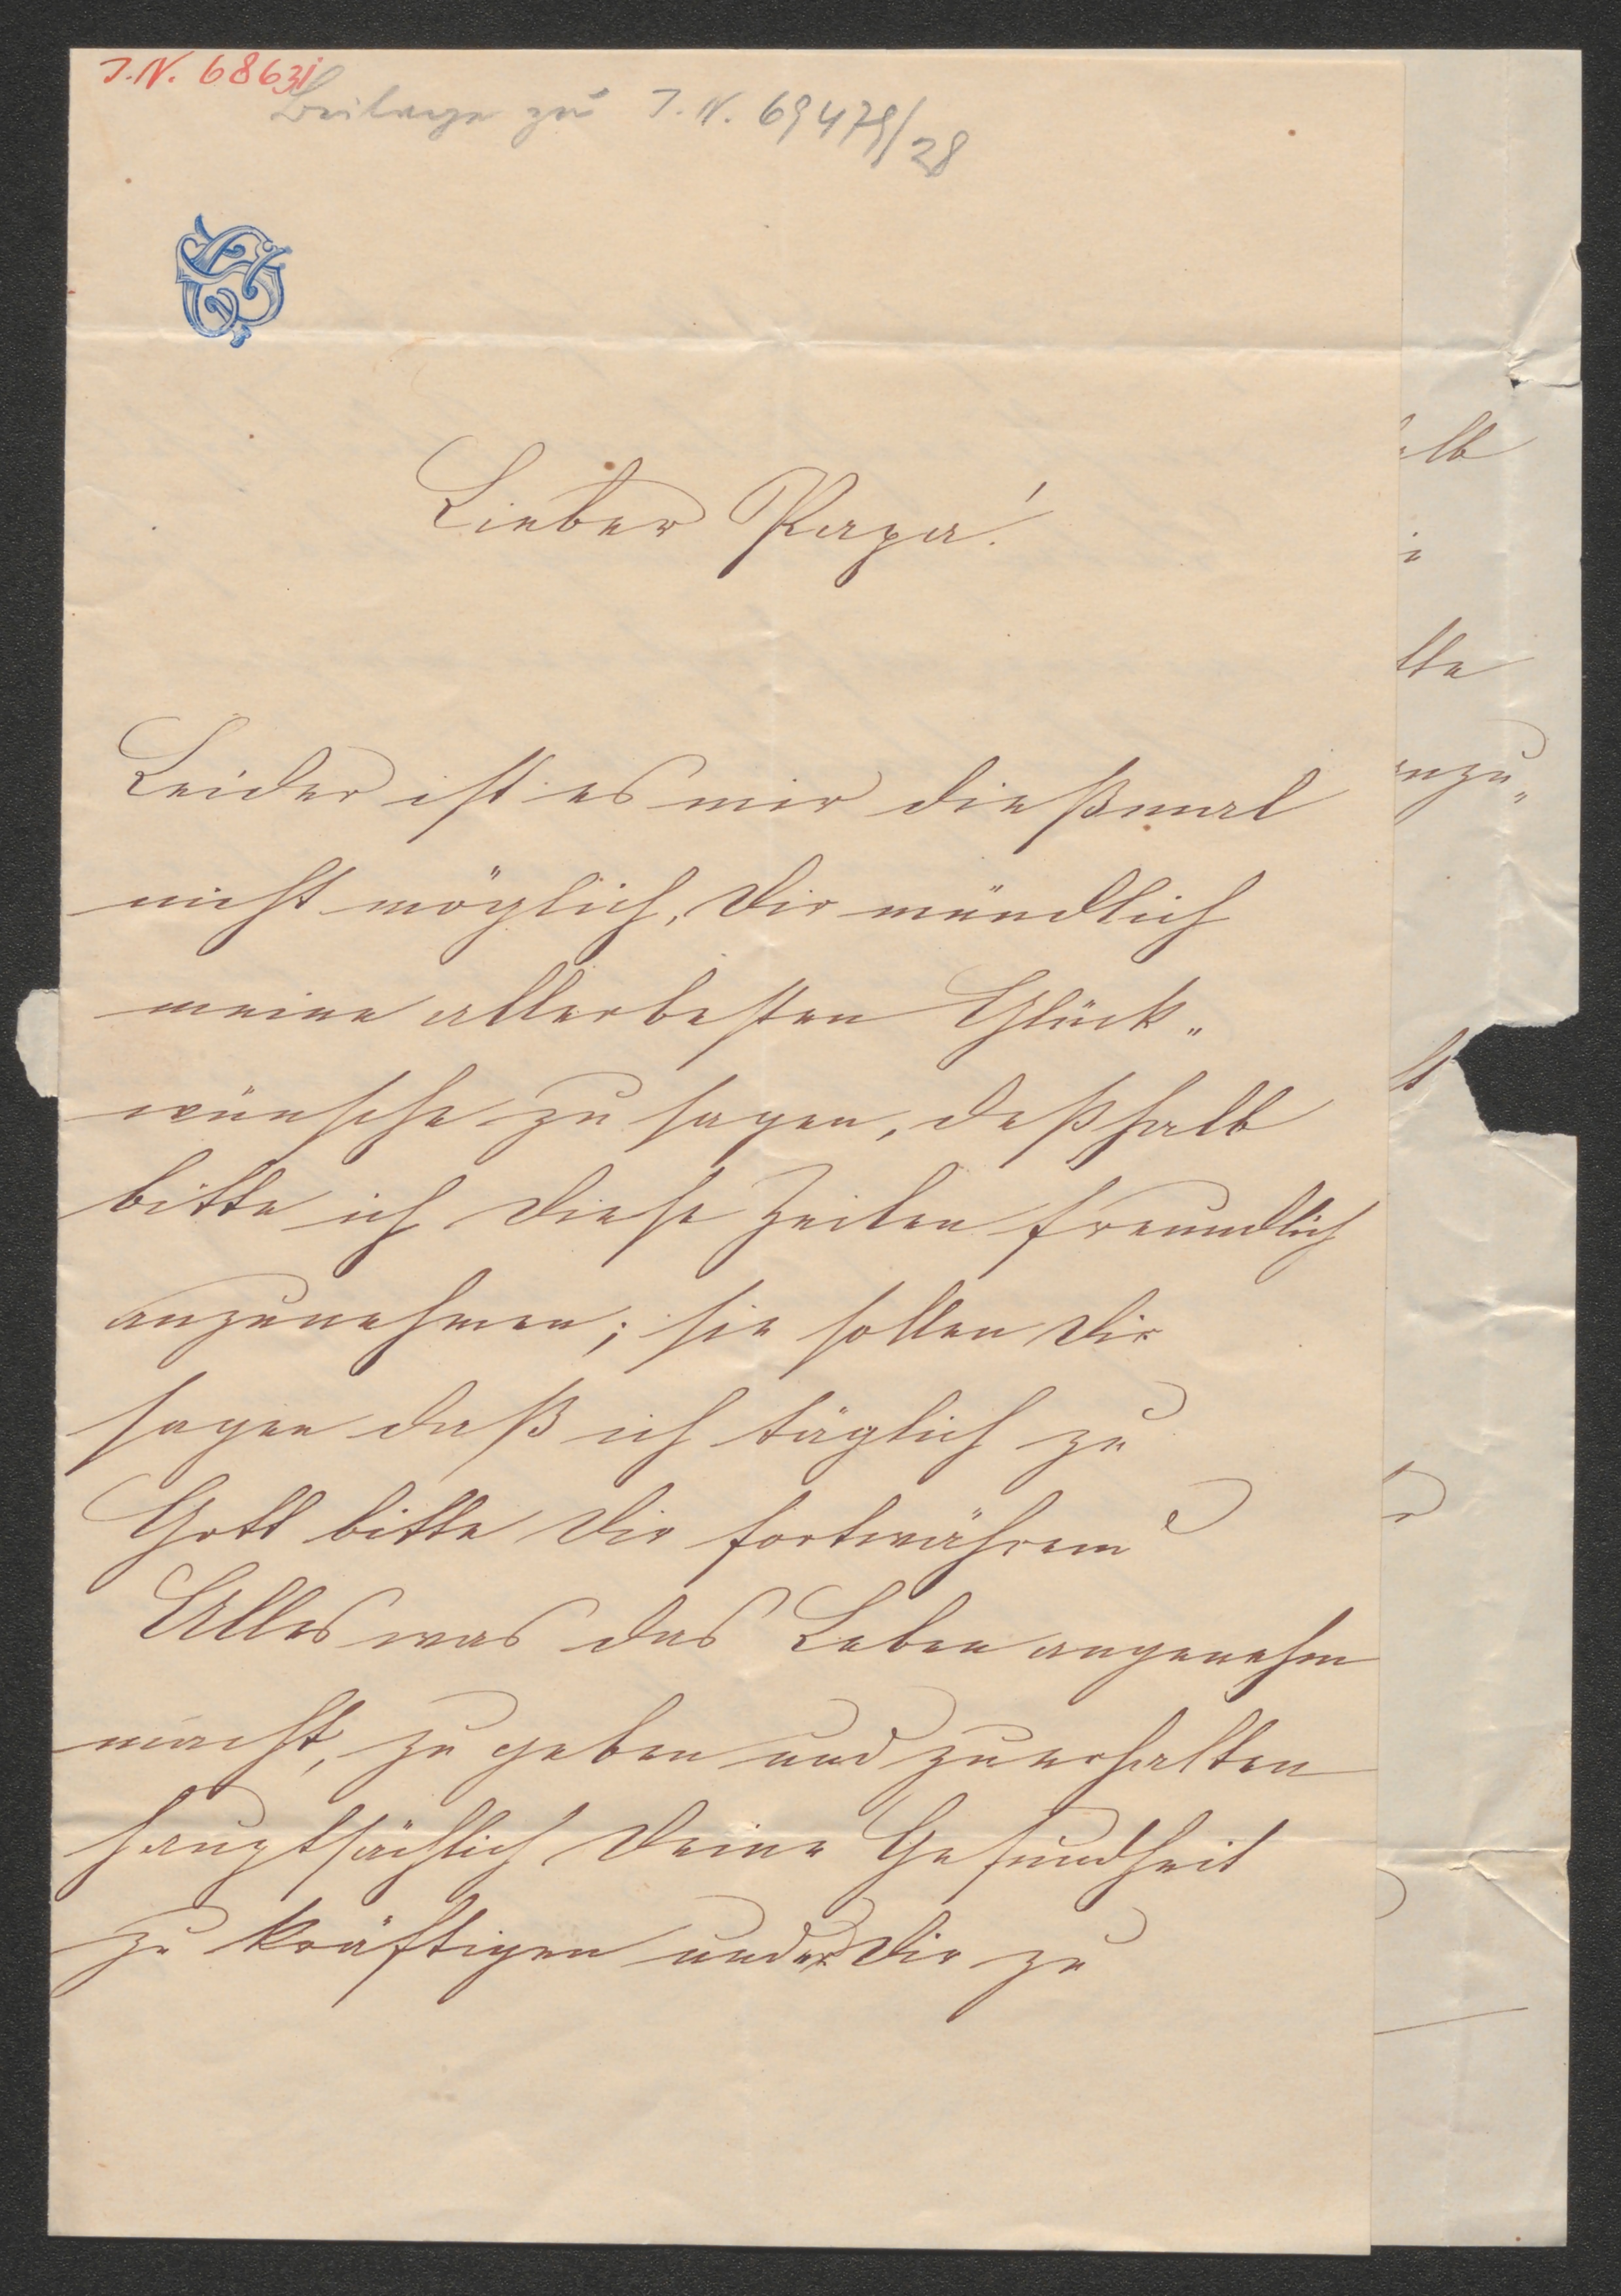 I.N. 68631
Beilage zu I.N. 69479/28
Lieber Papa!
Leider ist es mir dießmal
nicht möglich, Dir mündlich
meine allerbesten Glück„
wünsche zu sagen, deßhalb
bitte ich diese Zeilen freundlich
anzunehmen; sie sollen Dir
sagen daß ich täglich zu
Gott bitte Dir fortwährend
Alles was das Leben angenehm
macht, zu geben und zu erhalten
hauptsächlich Deine Gesundheit
zu kräftigen und Dir zu